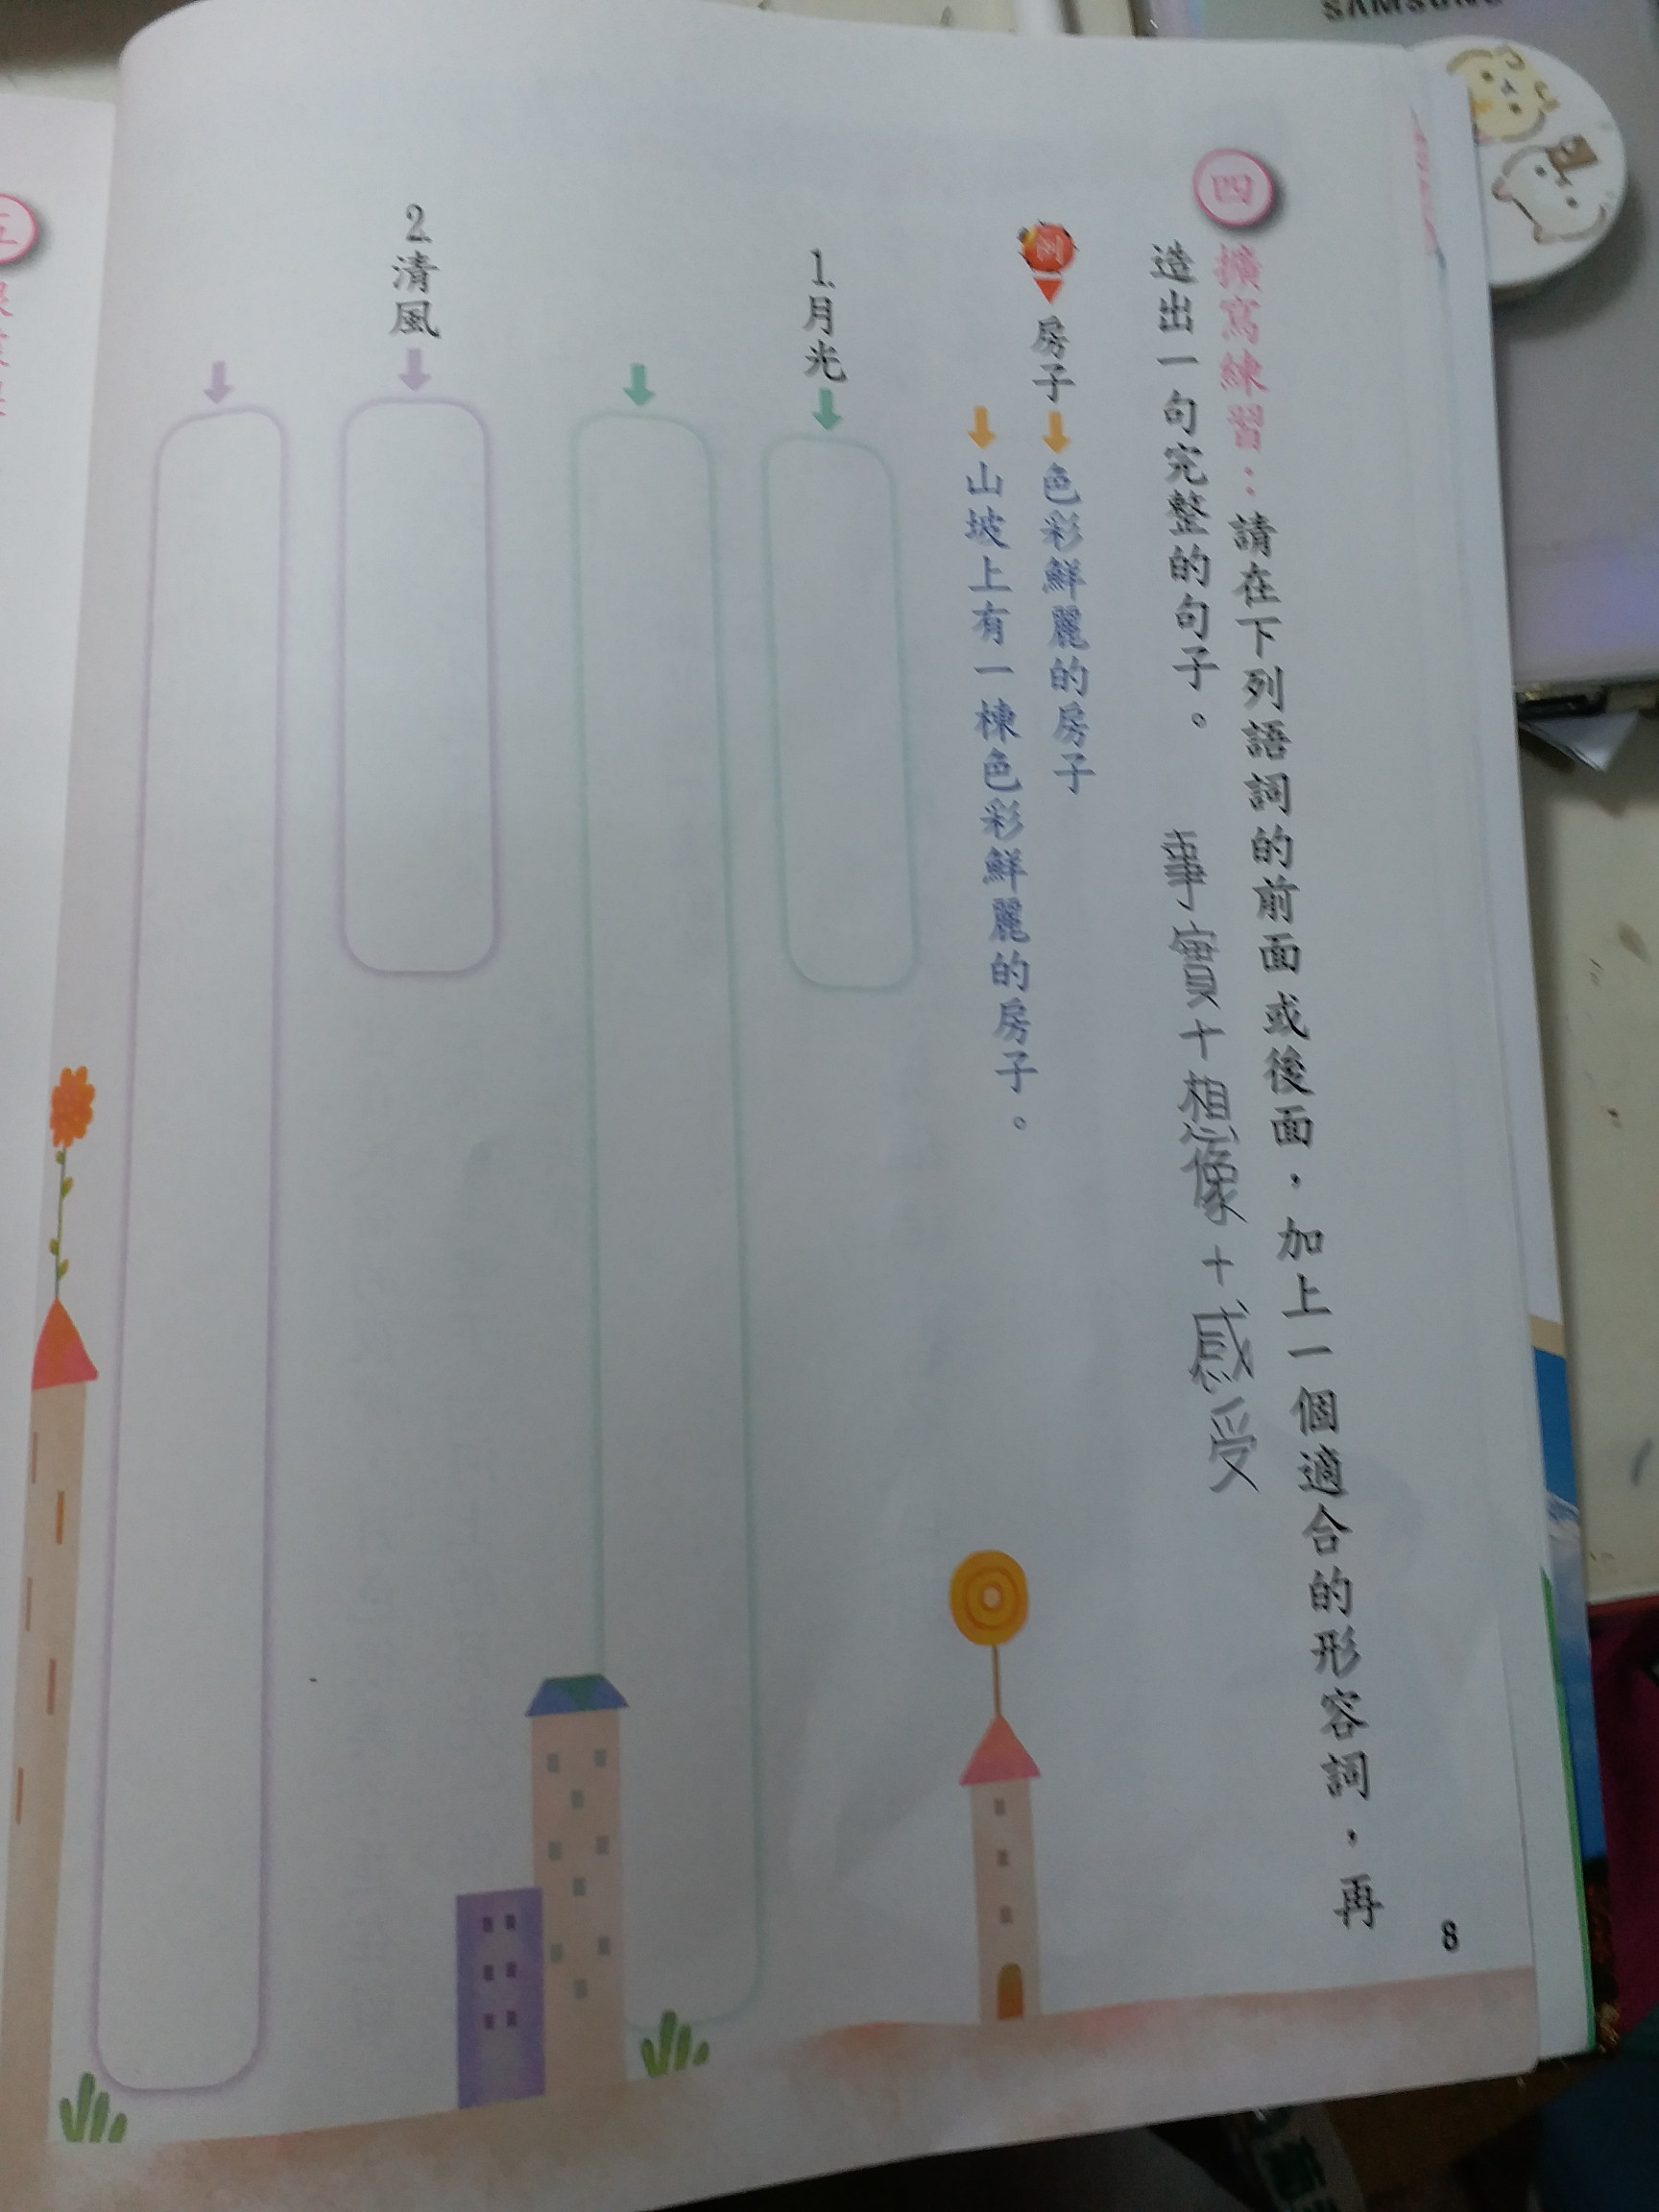 SAMSUNG
8
四 擴寫練習：請在下列語詞的前面或後面，加上一個適合的形容詞，再
造出一句完整的句子。 事實+想像+感受
例 房子 色彩鮮麗的房子
山坡上有一棟色彩鮮麗的房子。
1.月光
2.清風
五